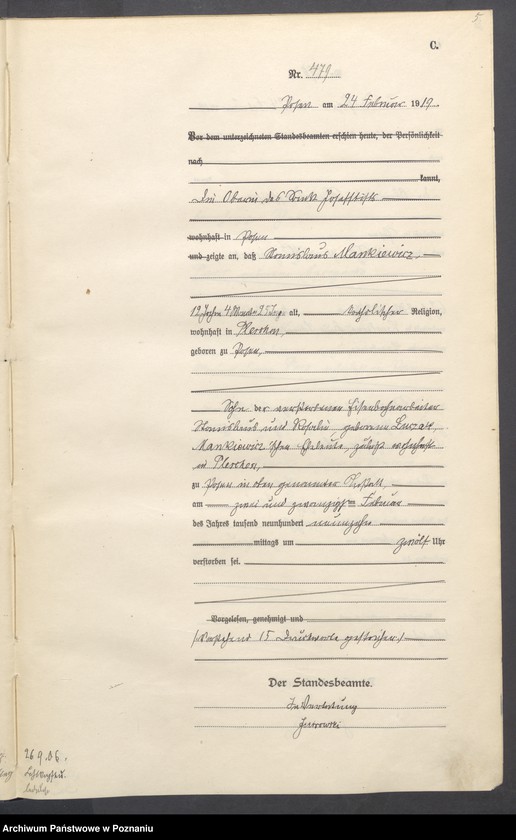 5
C.
Nr. 479
Posen am 24 Februar 1919.
Vor dem unterzeichneten Standesbeamten erschien heute, der Persönlichkeit
nach
kannt,
Die Oberin des Sankt Josefstifts
wohnhaft in Posen
und zeigte an, daß Stanislaus Mankiewicz,
12 Jahre 4 Monate alt, katholischer Religion,
wohnhaft in Pleschen,
geboren zu Posen,
Sohn der verstorbenen Eisenbahnarbeiter
Stanislaus und Rosalie, geborene
Mankiewicz'schen Eheleute, zuletzt wohnhaft
in Pleschen,
zu Posen in oben genannter Anstalt,
am zwei und zwanzigsten Februar
des Jahres tausend neunhundert neunzehn
mittags um zwölf Uhr
verstorben sei.
Vorgelesen, genehmigt und
(Vorstehend 15 Druckworte gestrichen.)
Der Standesbeamte.
In Vertretung
26 9.06.
Archiwum Państwowe w Poznaniu